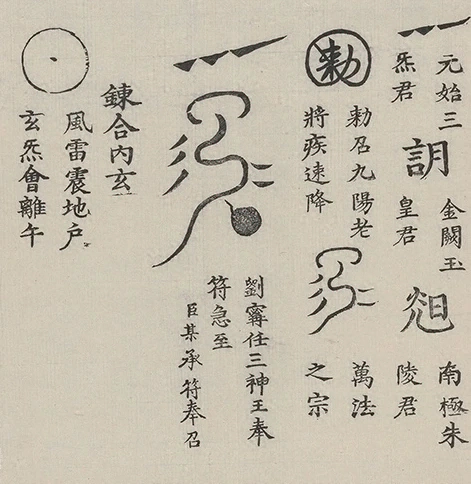 元始三
炁君
金闕玉
皇君
南極朱
陵君
勅
勅召九陽老
將疾速降
萬法
之宗
劉甯任三神王奉
符急至
臣某承符奉召
鍊合內玄
風雷震地户
玄炁會離午